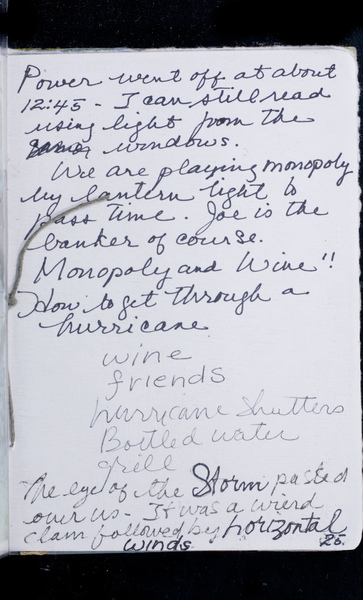 Power went off at about
12:45 - I can still read
using light from the
windows.
We are playing monopoly
by lantern light to
pass time. Joe is the
banker of course.
Monopoly and Wine!!
How to get through a
hurricane
wine
friends
hurricane shutters
Bottled water
grill
The eye of the Storm passed
over us - It was a wierd
clam followed by horizontal
winds
25.